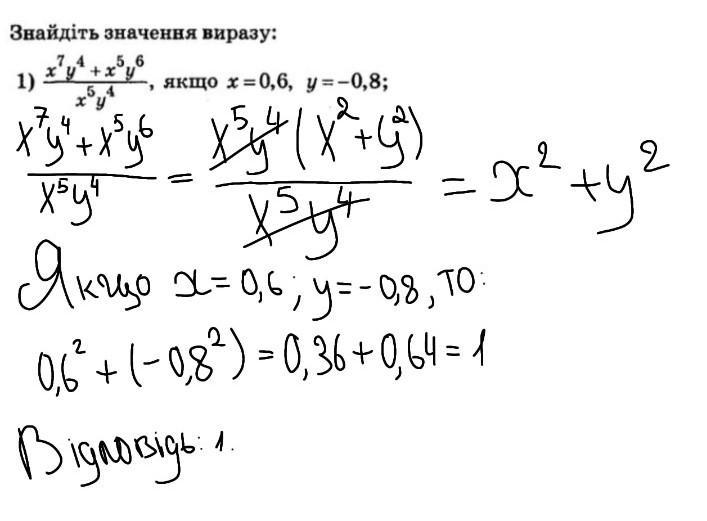 Знайдіть значення виразу:
1) (x⁷y⁴ + x⁵y⁶)/(x⁵y⁴), якщо x = 0,6, y = −0,8;
(x⁷y⁴ + x⁵y⁶)/(x⁵y⁴) = (x⁵y⁴(x² + y²))/(x⁵y⁴) = x² + y²
Якщо x = 0,6; y = −0,8, то:
0,6² + (−0,8²) = 0,36 + 0,64 = 1
Відповідь: 1.